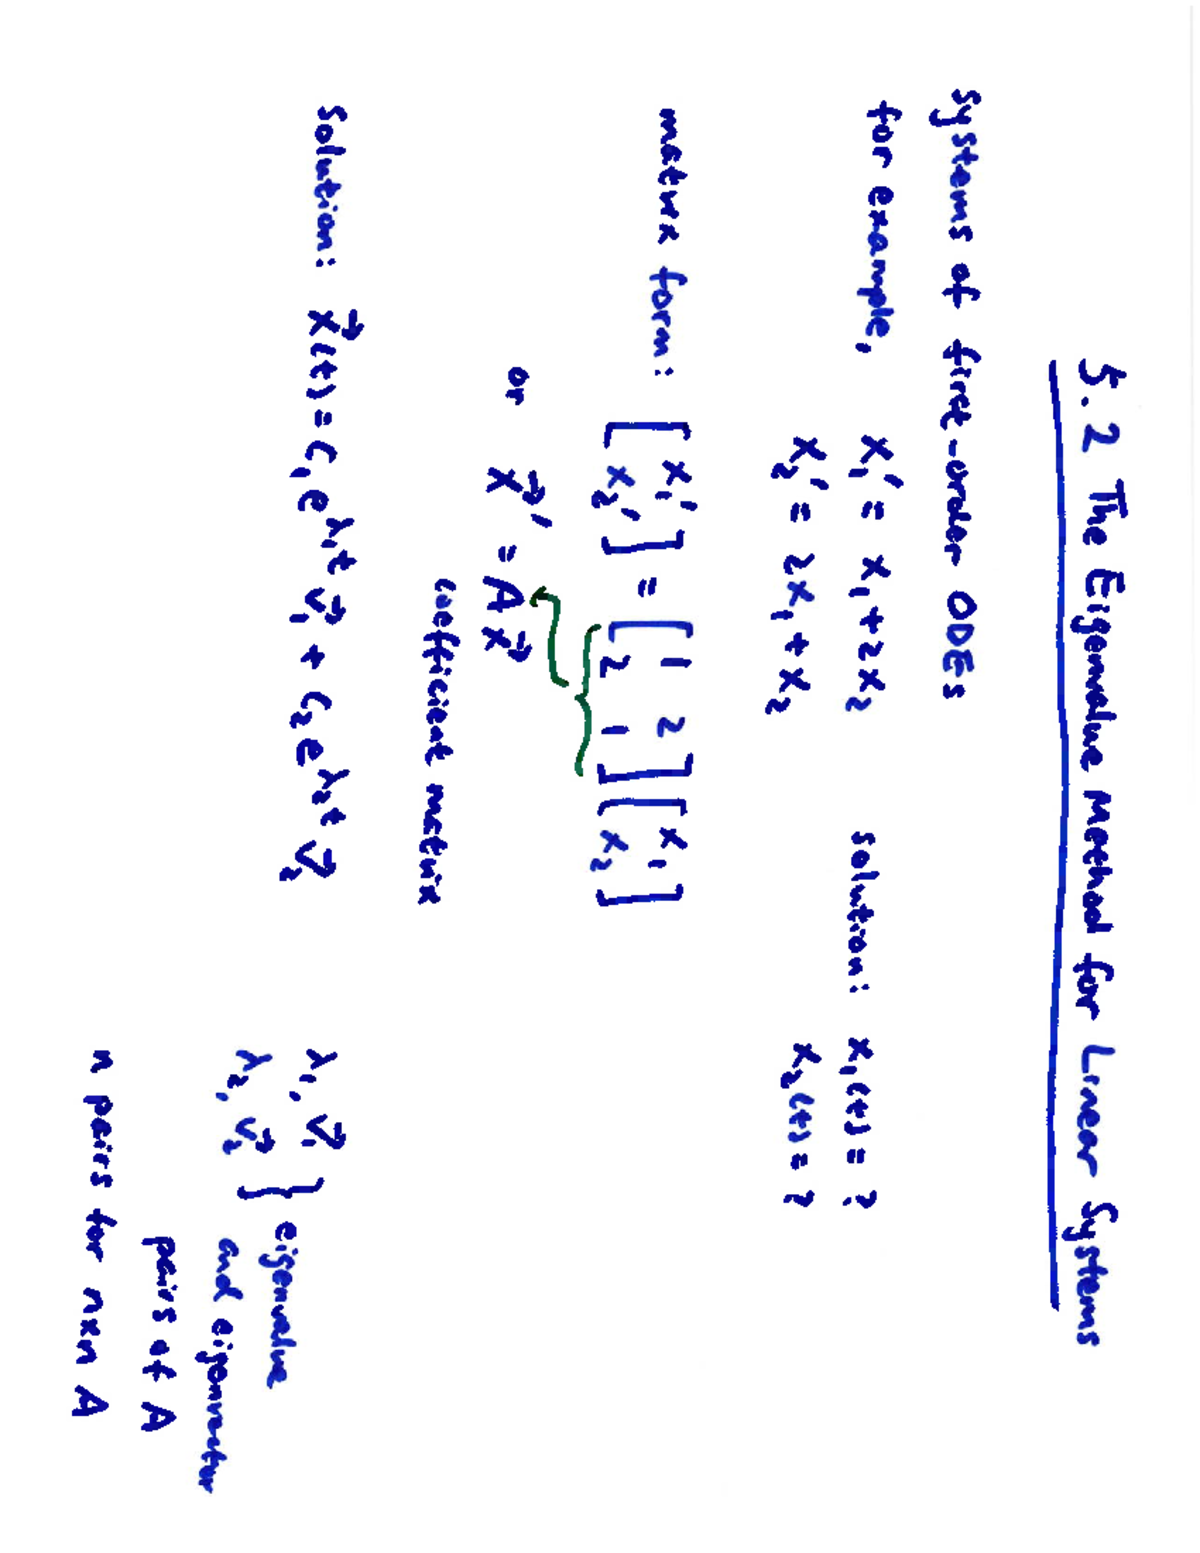 5.2 The Eigenvalue Method for Linear Systems
Systems of first-order ODEs
for example, x₁' = x₁ + 2x₂ solution: x₁(t) = ?
x₂' = 2x₁ + x₂ x₂(t) = ?
matrix form: [x₁' x₂'] = [1 2 2 1][x₁ x₂]
or x⃗' = A x⃗
coefficient matrix
Solution: x⃗(t) = c₁e^λ₁t v⃗₁ + c₂e^λ₂t v⃗₂
λ₁, v⃗₁
λ₂, v⃗₂ } eigenvalue
and eigenvector
pairs of A
n pairs for n×n A